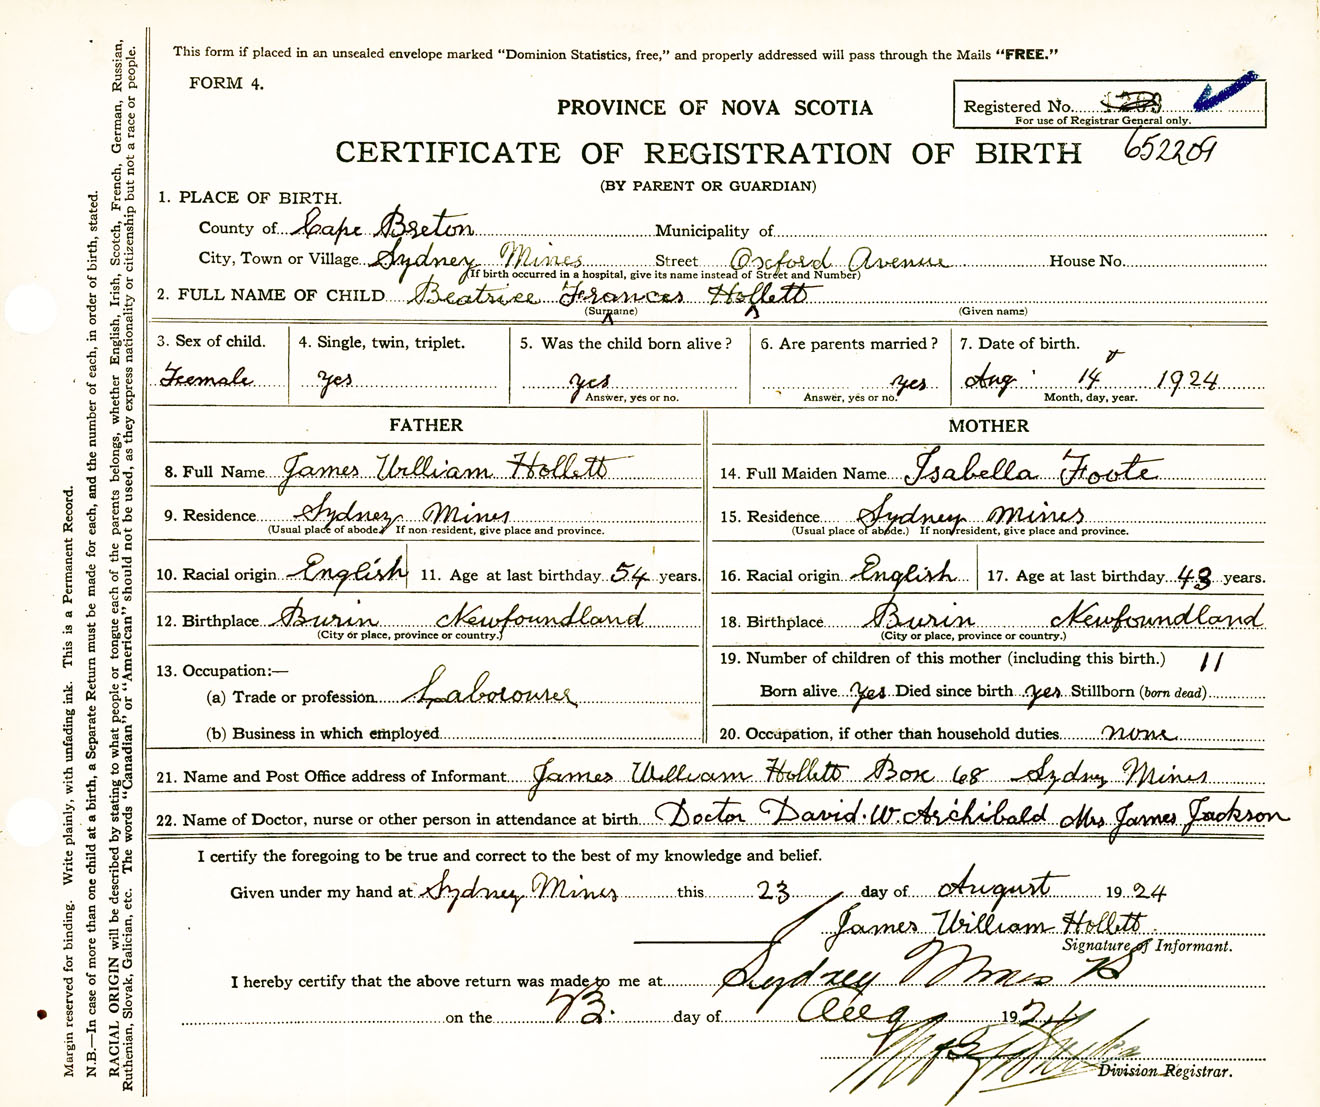 This form if placed in an unsealed envelope marked "Dominion Statistics, free," and properly addressed will pass through the Mails "FREE."
FORM 4.
PROVINCE OF NOVA SCOTIA
Registered No.
For use of Registrar General only.
652209
CERTIFICATE OF REGISTRATION OF BIRTH
(BY PARENT OR GUARDIAN)
1. PLACE OF BIRTH.
County of Cape Breton Municipality of
City, Town or Village Sydney Mines Street Oxford Avenue House No.
(If birth occurred in a hospital, give its name instead of Street and Number)
2. FULL NAME OF CHILD Beatrice Frances Hollett
(Surname) (Given name)
3. Sex of child. 4. Single, twin, triplet. 5. Was the child born alive? 6. Are parents married? 7. Date of birth.
Female yes yes yes Aug 14 1924
Answer, yes or no. Answer, yes or no. Month, day, year.
FATHER MOTHER
8. Full Name James William Hollett 14. Full Maiden Name Isabella Foote
9. Residence Sydney Mines 15. Residence Sydney Mines
(Usual place of abode.) If non-resident, give place and province. (Usual place of abode.) If non-resident, give place and province.
10. Racial origin English 11. Age at last birthday 54 years. 16. Racial origin English 17. Age at last birthday 43 years.
12. Birthplace Burin Newfoundland 18. Birthplace Burin Newfoundland
(City or place, province or country.) (City or place, province or country.)
13. Occupation:— 19. Number of children of this mother (including this birth.) 11
(a) Trade or profession Labourer Born alive yes Died since birth yes Stillborn (born dead)
(b) Business in which employed 20. Occupation, if other than household duties none
21. Name and Post Office address of Informant James William Hollett Box 68 Sydney Mines
22. Name of Doctor, nurse or other person in attendance at birth Doctor David. W. Archibald Mrs James Jackson
I certify the foregoing to be true and correct to the best of my knowledge and belief.
Given under my hand at Sydney Mines this 23 day of August 1924
James William Hollett
Signature of Informant.
I hereby certify that the above return was made to me at Sydney Mines
on the 23. day of Aug 1924
Division Registrar.
Margin reserved for binding. Write plainly, with unfading ink. This is a Permanent Record.
N.B.—In case of more than one child at a birth, a Separate Return must be made for each, and the number of each, in order of birth, stated.
RACIAL ORIGIN will be described by stating to what people or tongue each of the parents belongs, whether English, Irish, Scotch, French, German, Russian,
Ruthenian, Slovak, Galician, etc. The words "Canadian" or "American" should not be used, as they express nationality or citizenship but not a race or people.